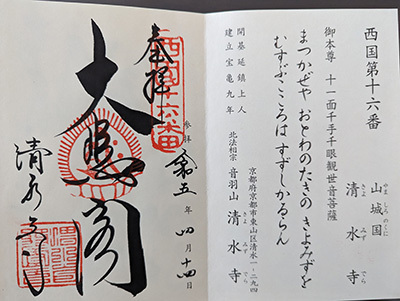 西国第十六番
山城国
やましろのくに
清水寺
きよみずでら
御本尊 十一面千手千眼観世音菩薩
まつかぜや おとわのたきの きよみずを
むすぶこころは すずしかるらん
開基 延鎮上人
建立 宝亀九年
京都府京都市東山区清水一-二九四
北法相宗 音羽山 清水寺
きよみずでら
奉拝
西国十六番
参拝 令和五年四月十四日
大悲閣
清水寺